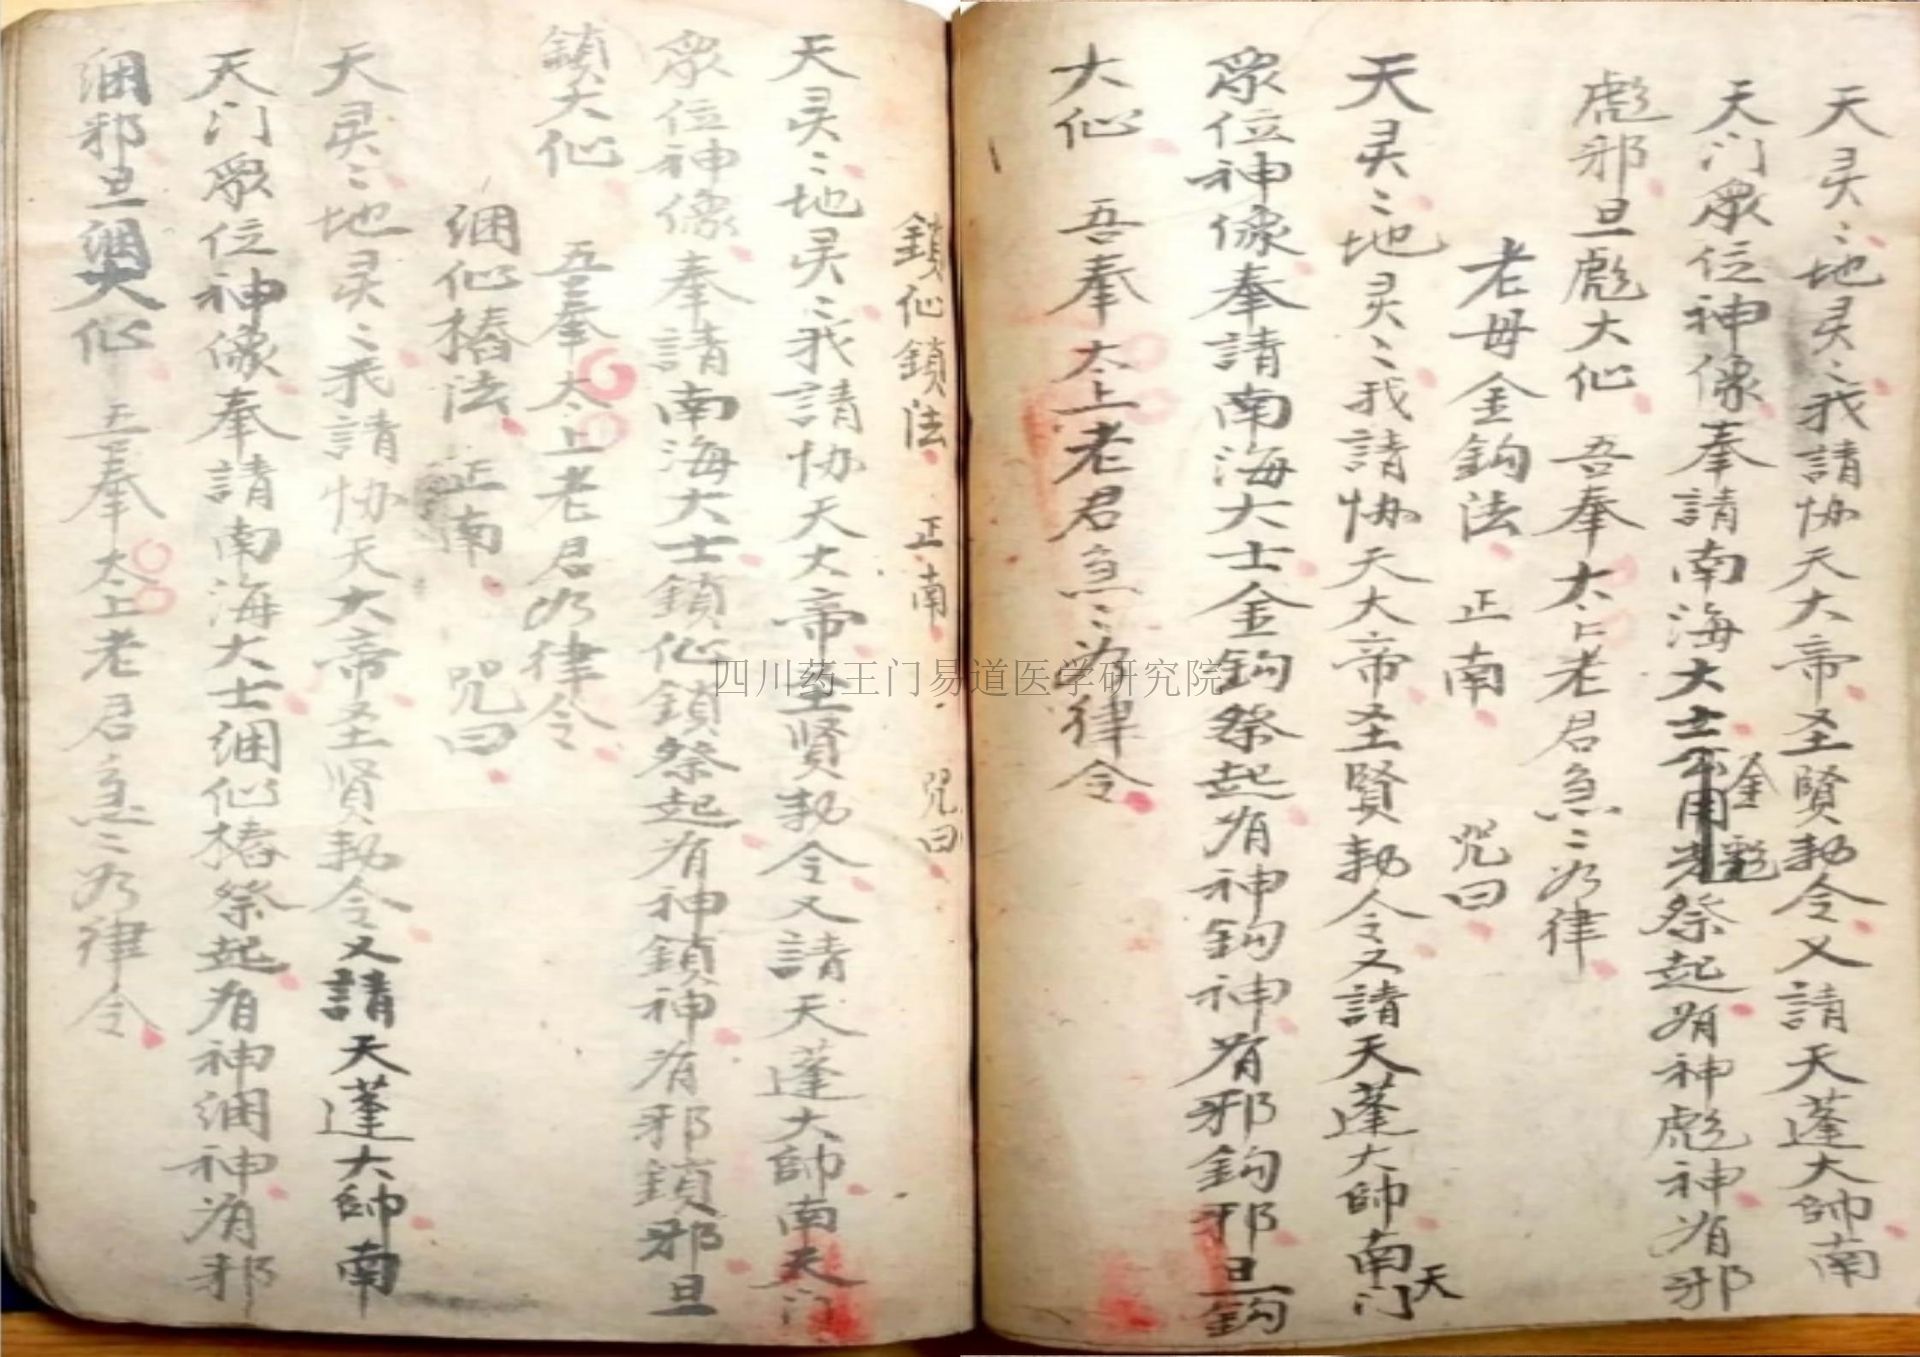 天灵〻地灵〻我請协天大帝圣賢勅令又請天蓬大帅南
天门眾位神像奉請南海大士金彪祭起有神彪神有邪
彪邪旦彪大仙 吾奉太上老君急〻如律
老母金鈎法 正南 咒曰
天灵〻地灵〻我請协天大帝圣賢勅令又請天蓬大帅南天门
眾位神像奉請南海大士金鈎祭起有神鈎神有邪鈎邪旦鈎
大仙 吾奉太上老君急〻如律令
鎖仙鎖法 正南 咒曰
天灵〻地灵〻我請协天大帝圣贤勅令又請天蓬大帥南天门
眾位神像奉請南海大士鎖仙鎖祭起有神鎖神有邪鎖邪旦
鎖大仙 吾奉太上老君如律令
綑仙樁法 正南 咒曰
天灵〻地灵〻我請协天大帝圣贤勅令又請天蓬大帥南
天门眾位神像奉請南海大士綑仙樁祭起有神綑神有邪
綑邪旦綑大仙 吾奉太上老君急〻如律令
四川药王门易道医学研究院